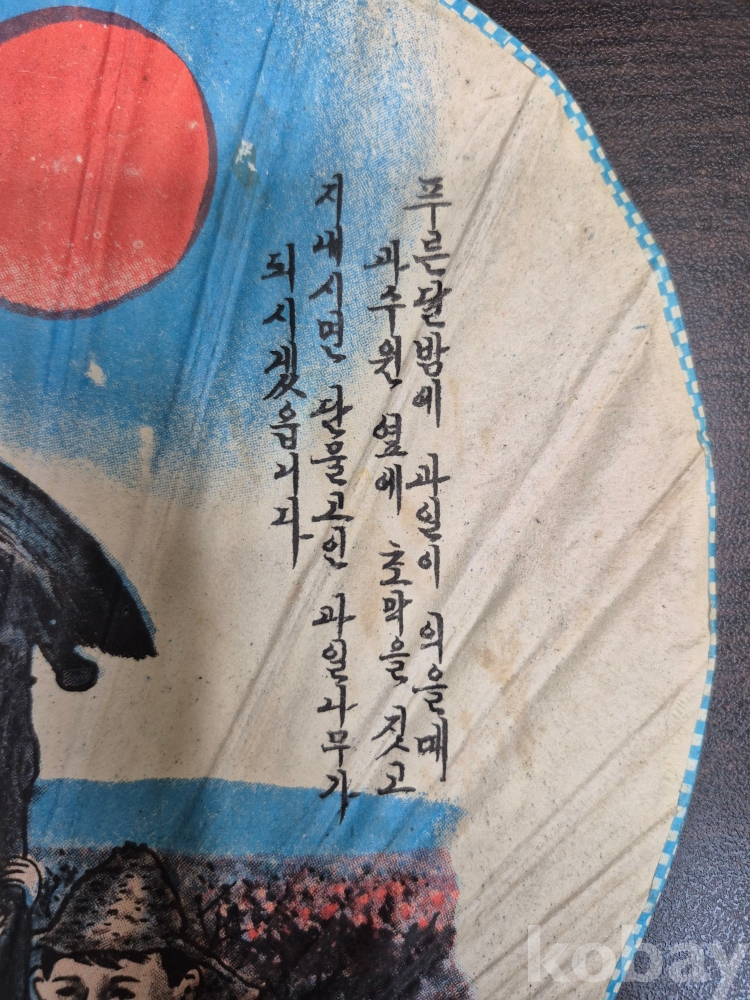 푸른달밤에 과일이 익을때
과수원 옆에 초막을 짓고
지내시면 단물고인 과일나무가
되시겠읍니다
kobay